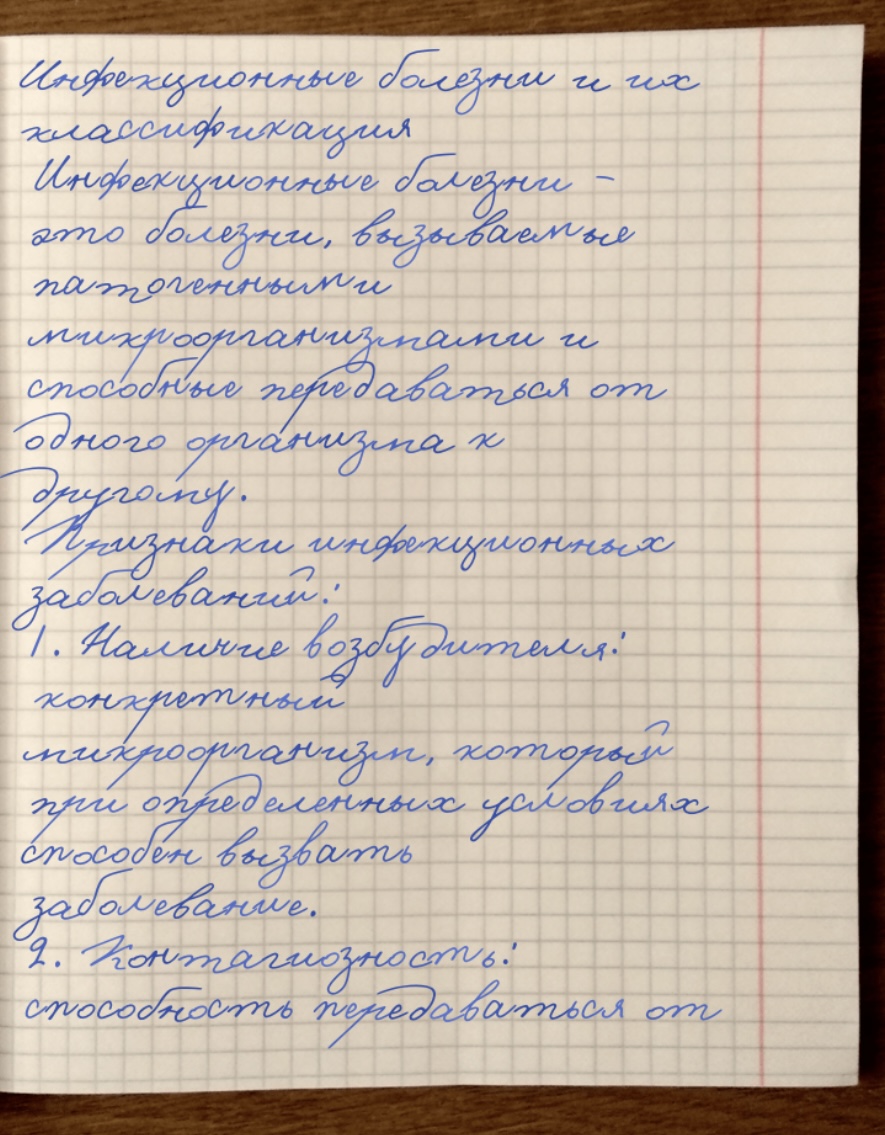 Инфекционные болезни и их
классификация
Инфекционные болезни –
это болезни, вызываемые
патогенными
микроорганизмами и
способные передаваться от
одного организма к
другому.
Признаки инфекционных
заболеваний:
1. Наличие возбудителя:
конкретный
микроорганизм, который
при определенных условиях
способен вызвать
заболевание.
2. Контагиозность:
способность передаваться от